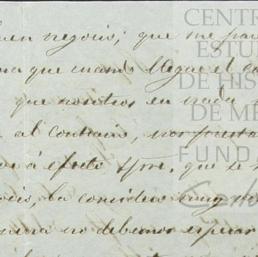 uen negocio; que me pa
na que cuando llegue el ca
que nosotros en nada
al contrario, nos
á efecto
la considero muy
no debemos esperar
CENTR
ESTU
DE HIS
DE MÉ
FUND